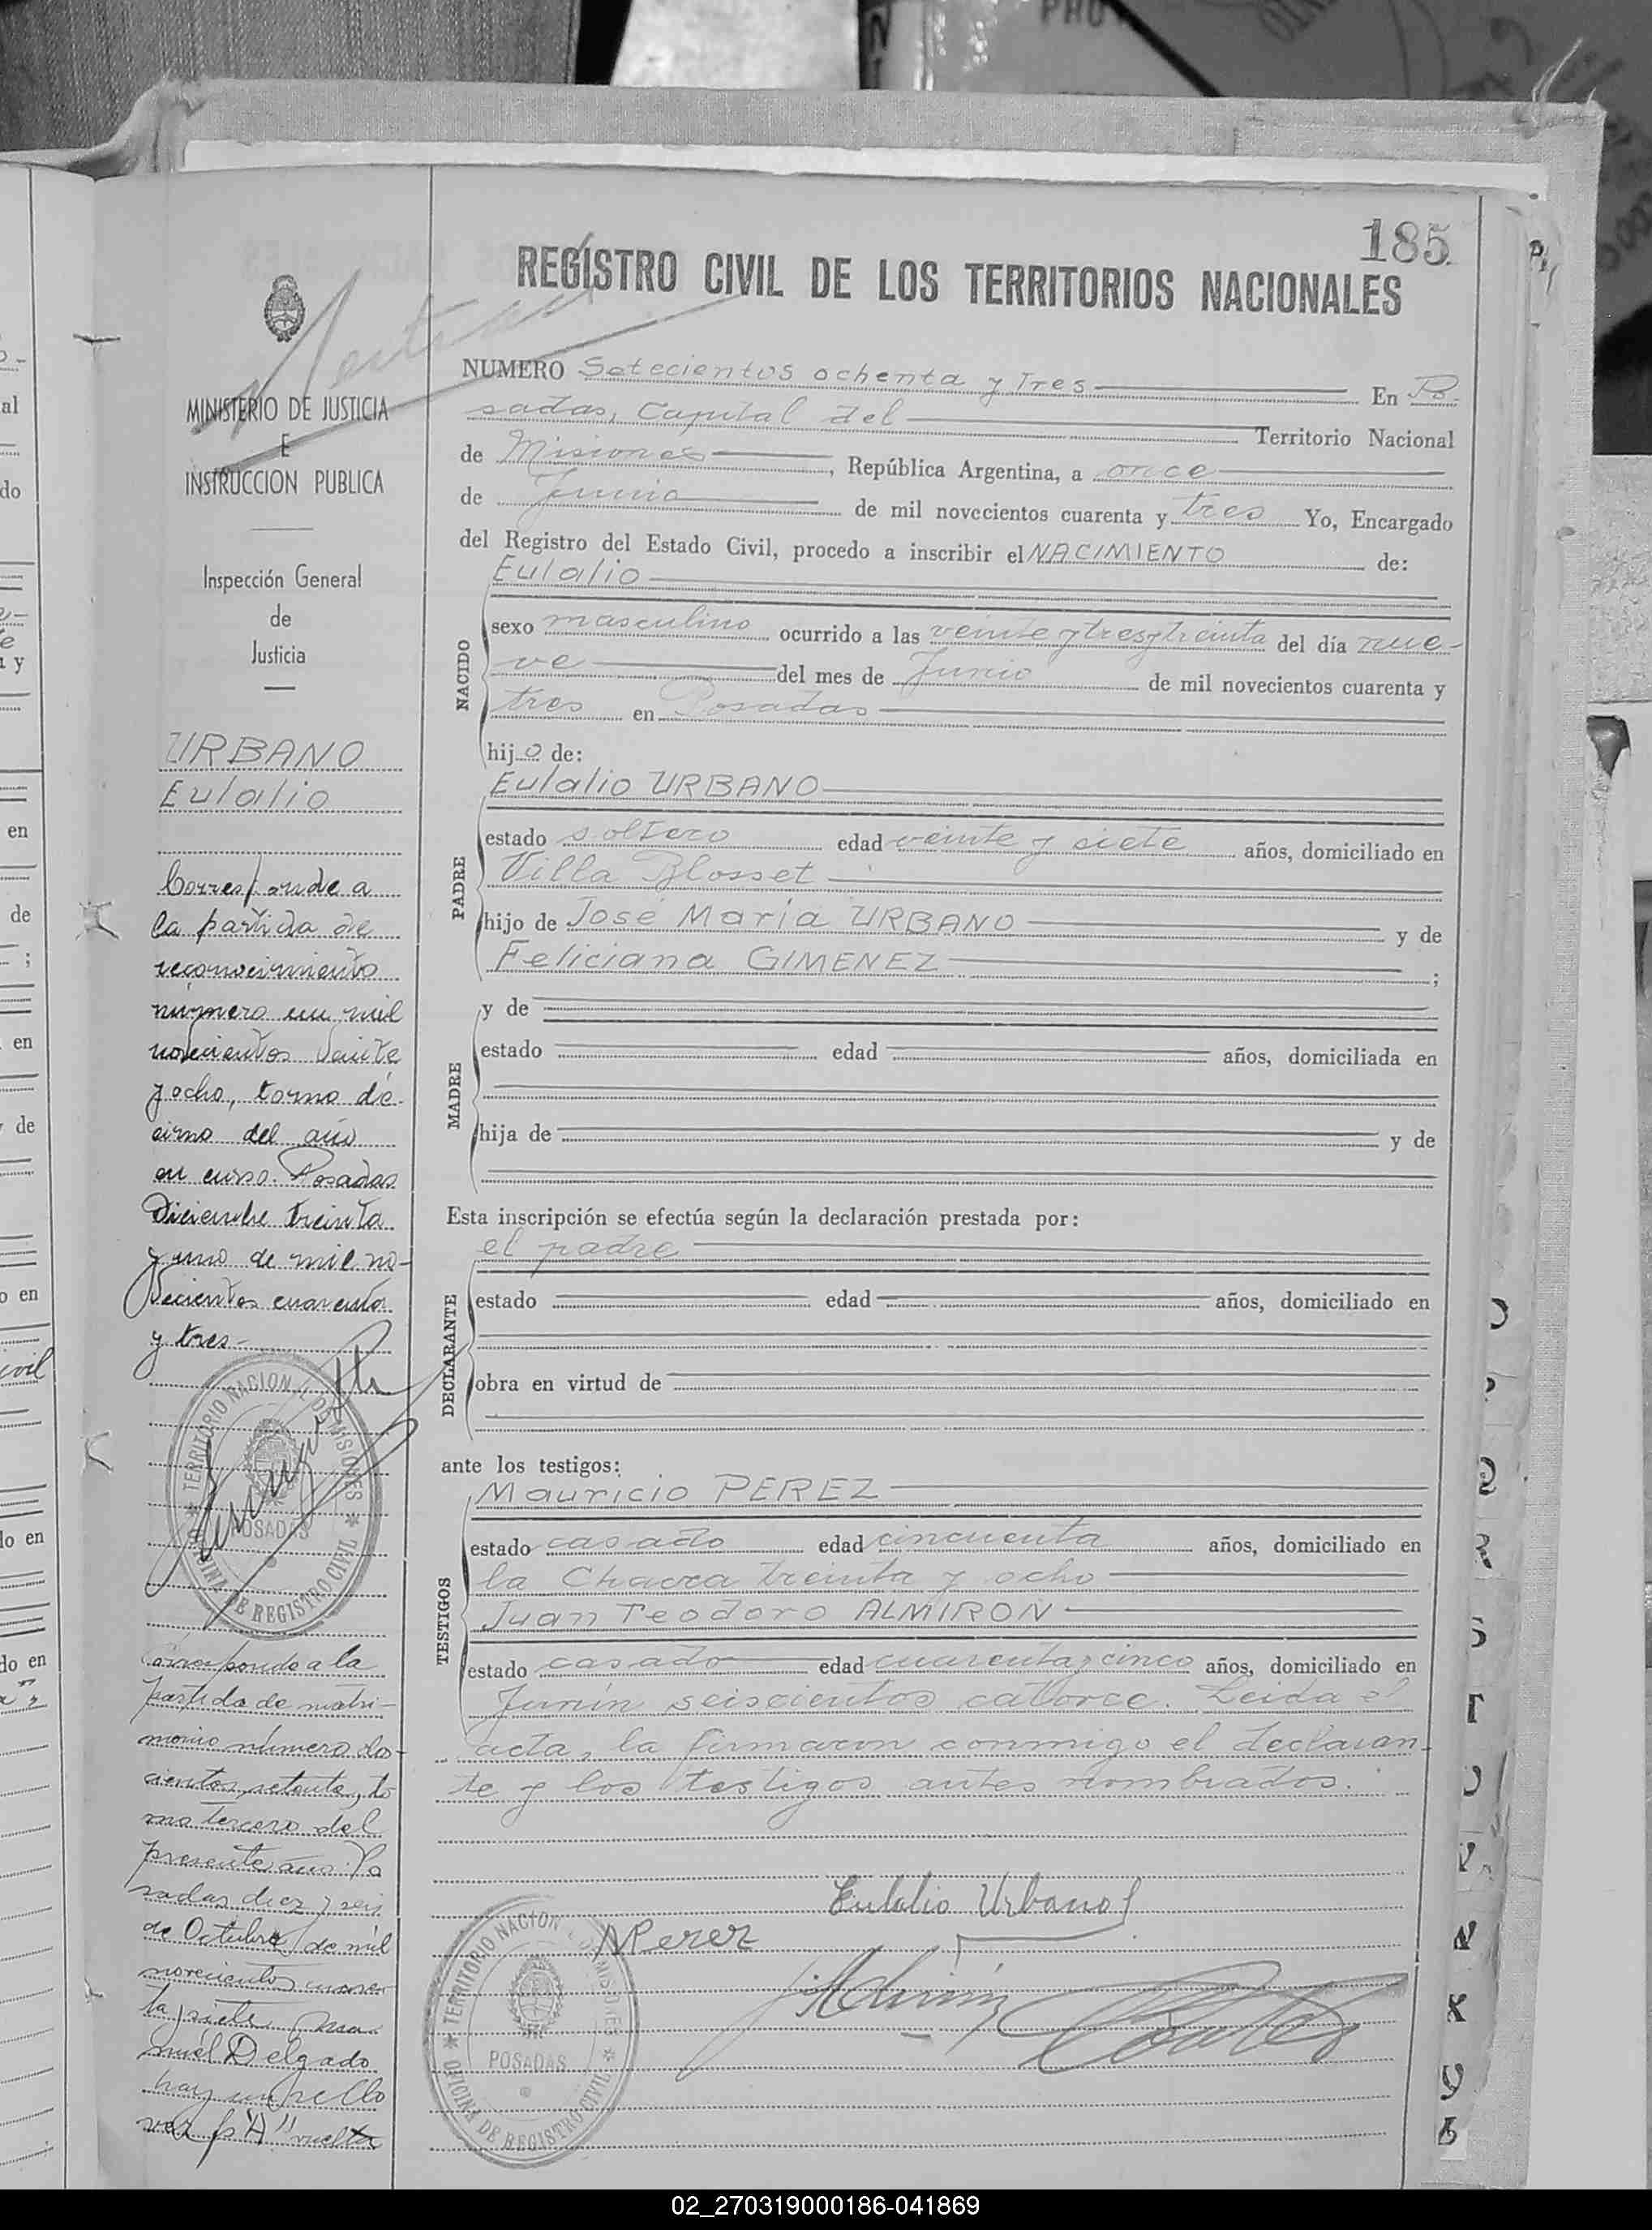 185
REGISTRO CIVIL DE LOS TERRITORIOS NACIONALES
MINISTERIO DE JUSTICIA
E
INSTRUCCION PUBLICA
Inspección General
de
Justicia
URBANO
Eulalio
Corresponde a
la partida de
reconocimiento
número un mil
novecientos veinte
y ocho, tomo dé-
cimo del año
en curso. Posadas
Diciembre treinta
y uno de mil no-
vecientos cuarenta
y tres-
TERRITORIO NACIONAL DE MISIONES
POSADAS
OFICINA DE REGISTRO CIVIL
Corresponde a la
partida de matri-
monio número dos-
cientos setenta, to
mo tercero del
presente año. Po
sadas diez y seis
de Octubre de mil
novecientos cuaren
ta y siete. Ma-
nuél Delgado
hay un sello
ver fs "A" vuelta
NUMERO Setecientos ochenta y tres En Po-
sadas, Capital del Territorio Nacional
de Misiones, República Argentina, a once
de Junio de mil novecientos cuarenta y tres Yo, Encargado
del Registro del Estado Civil, procedo a inscribir el NACIMIENTO de:
NACIDO
Eulalio
sexo masculino ocurrido a las veinte y tres y treinta del día nue-
ve del mes de Junio de mil novecientos cuarenta y
tres en Posadas
hijo de:
PADRE
Eulalio URBANO
estado soltero edad veinte y siete años, domiciliado en
Villa Blosset
hijo de José María URBANO y de
Feliciana GIMENEZ ;
MADRE
y de
estado edad años, domiciliada en
hija de y de
Esta inscripción se efectúa según la declaración prestada por:
DECLARANTE
el padre
estado edad años, domiciliado en
obra en virtud de
ante los testigos:
TESTIGOS
Mauricio PEREZ
estado casado edad cincuenta años, domiciliado en
la Chacra treinta y ocho
Juan Teodoro ALMIRON
estado casado edad cuarenta y cinco años, domiciliado en
Junín seiscientos catorce. Leida el
acta, la firmaron conmigo el declaran-
te y los testigos antes nombrados.
Eulalio Urbano
MPerez
TERRITORIO NACIONAL DE MISIONES
POSADAS
OFICINA DE REGISTRO CIVIL
02_270319000186-041869